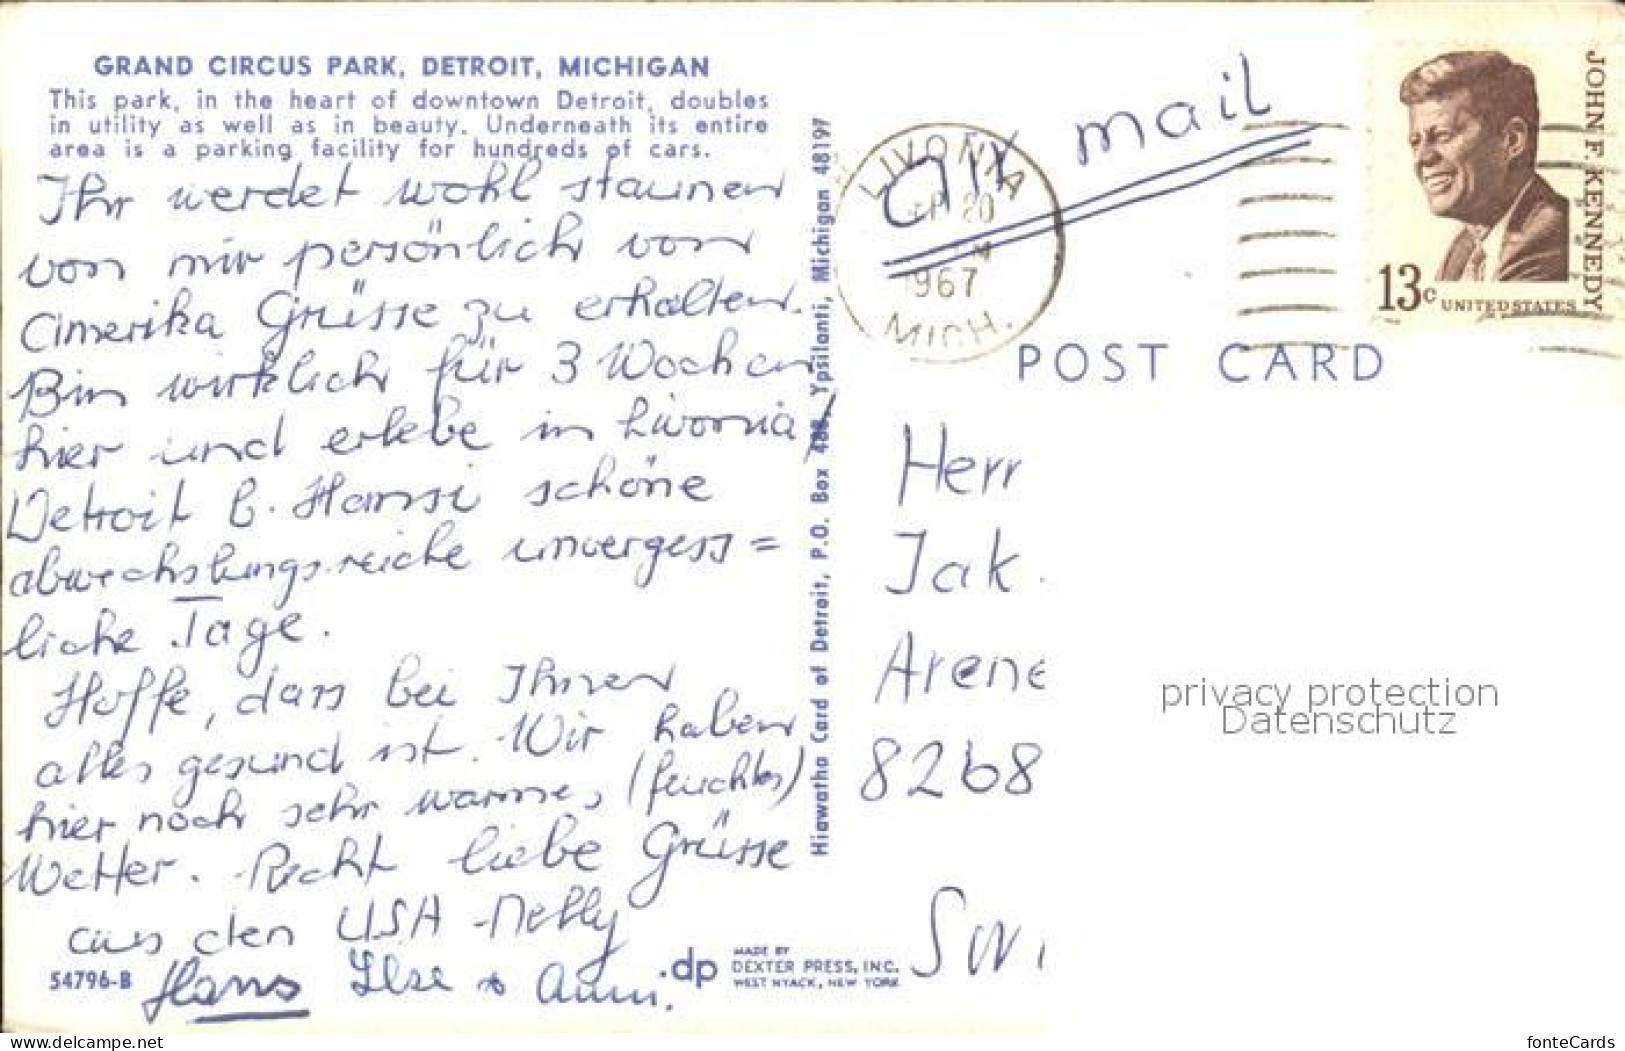 GRAND CIRCUS PARK, DETROIT, MICHIGAN
This park, in the heart of downtown Detroit, doubles
in utility as well as in beauty. Underneath its entire
area is a parking facility for hundreds of cars.
Ihr werdet wohl staunen
von mir persönlich von
Amerika Grüsse zu erhalten.
Bin wirklich für 3 Wochen
hier und erlebe in Livonia/
Detroit b. Hansi schöne
abwechslungsreiche unvergess=
liche Tage.
Hoffe, dass bei Ihnen
alles gesund ist. Wir haben
hier noch sehr warmes, (feuchtes)
Wetter. Recht liebe Grüsse
aus den USA - Nelly
Hans Ilse + Anni.
54796-B
Hiawatha Card of Detroit, P.O. Box 488, Ypsilanti, Michigan 48197
.dp
MADE BY
DEXTER PRESS, INC.
WEST NYACK, NEW YORK
air mail
LIVONIA
SEP 20
1967
MICH.
JOHN F. KENNEDY
13c UNITED STATES
POST CARD
Herr
Jak.
Arene
8268
Swi
privacy protection
Datenschutz
www.delcampe.net
fonteCards